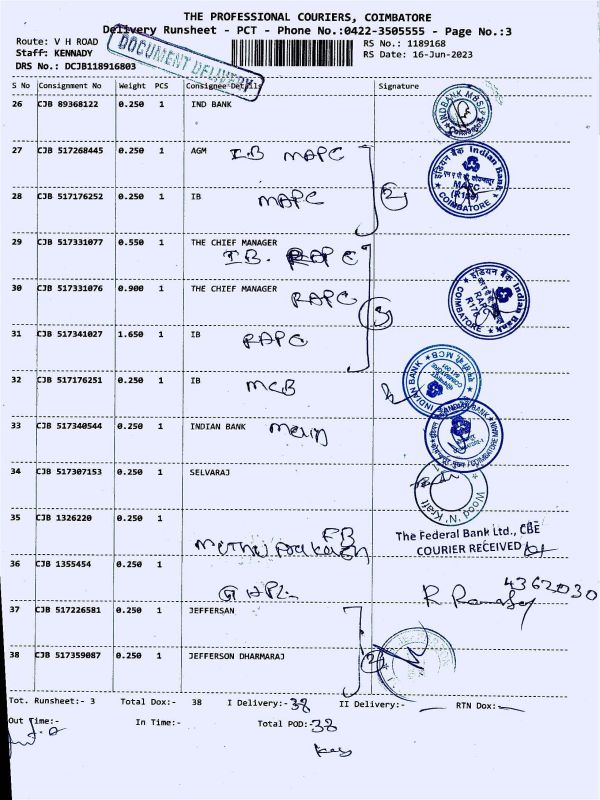 THE PROFESSIONAL COURIERS, COIMBATORE
Delivery Runsheet - PCT - Phone No.:0422-3505555 - Page No.:3
Route: V H ROAD
RS No.: 1189168
Staff: KENNADY
RS Date: 16-Jun-2023
DRS No.: DCJB118916803
DOCUMENT DELIVERY
S No Consignment No Weight PCS Consignee Details Signature
26 CJB 89368122 0.250 1 IND BANK
27 CJB 517268445 0.250 1 AGM IB MAPC
इंडियन बैंक Indian Bank
MAPC
COIMBATORE
28 CJB 517176252 0.250 1 IB MAPC 2
29 CJB 517331077 0.550 1 THE CHIEF MANAGER
IB. RAPC
30 CJB 517331076 0.900 1 THE CHIEF MANAGER
RAPC 3
इंडियन बैंक Indian Bank
RAPC
COIMBATORE
31 CJB 517341027 1.650 1 IB RAPC
32 CJB 517176251 0.250 1 IB MCB
INDIAN BANK MCB
33 CJB 517340544 0.250 1 INDIAN BANK Main
INDIAN BANK
34 CJB 517307153 0.250 1 SELVARAJ
Wood 'N' Kraft
35 CJB 1326220 0.250 1
FB
The Federal Bank Ltd., CBE
COURIER RECEIVED
36 CJB 1355454 0.250 1
4362030
37 CJB 517226581 0.250 1 JEFFERSAN
38 CJB 517359087 0.250 1 JEFFERSON DHARMARAJ 2
Tot. Runsheet:- 3 Total Dox:- 38 I Delivery:- 38 II Delivery:- RTN Dox:-
Out Time:- In Time:- Total POD:- 38